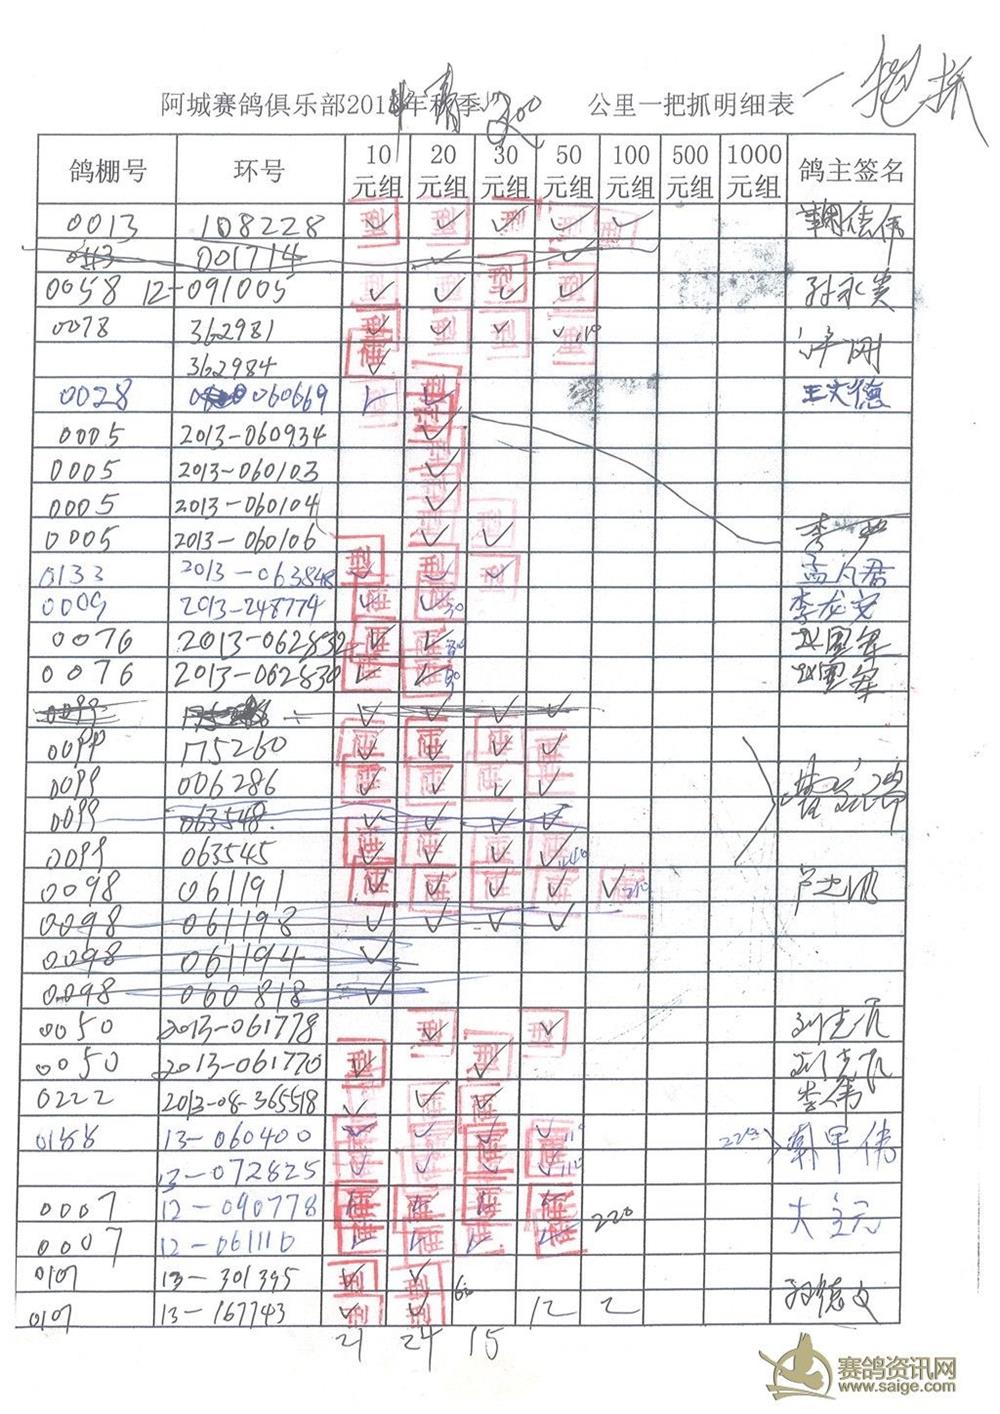 一把抓
阿城赛鸽俱乐部201 年 季 200 公里一把抓明细表
鸽棚号 环号 10元组 20元组 30元组 50元组 100元组 500元组 1000元组 鸽主签名
0013 108228 ✓ ✓ ✓ ✓ ✓
001714 ✓ ✓
0058 12-091005 ✓ ✓ ✓ ✓ 孙永贵
0078 362981 ✓ ✓ ✓ ✓ 110
362984 ✓
0028 060669 ✓ ✓ 王文德
0005 2013-060934 ✓
0005 2013-060103 ✓
0005 2013-060104 ✓
0005 2013-060106 ✓ ✓ 李
0133 2013-063848 ✓ ✓ ✓ 孟凡君
0009 2013-248774 ✓ ✓ 30 李龙安
0076 2013-062832 ✓ ✓ 30
0076 2013-062830 ✓ ✓ 30
0099 ✓ ✓ ✓ ✓
0099 175260 ✓ ✓ ✓ ✓
0099 006286 ✓ ✓ ✓ ✓
0099 063548 ✓ ✓ ✓ ✓
0099 063545 ✓ ✓ ✓ ✓ 440
0098 061191 ✓ ✓ ✓ ✓ ✓ 210
0098 061198 ✓ ✓ ✓ ✓
0098 061194 ✓
0098 060818 ✓
0050 2013-061778 ✓
0050 2013-061770 ✓ ✓
0222 2013-08-365518 ✓ ✓ ✓ 李伟
0188 13-060400 ✓ ✓ ✓ ✓ 110 220
13-072825 ✓ ✓ ✓ ✓ 110
0007 12-090778 ✓ ✓ ✓ ✓ 220 大
0007 12-061110 ✓ ✓ ✓ ✓
0107 13-301395 ✓ ✓ 60 孙德文
0107 13-167743 ✓ ✓ 12 2
21 24 15
赛鸽资讯网
www.saige.com